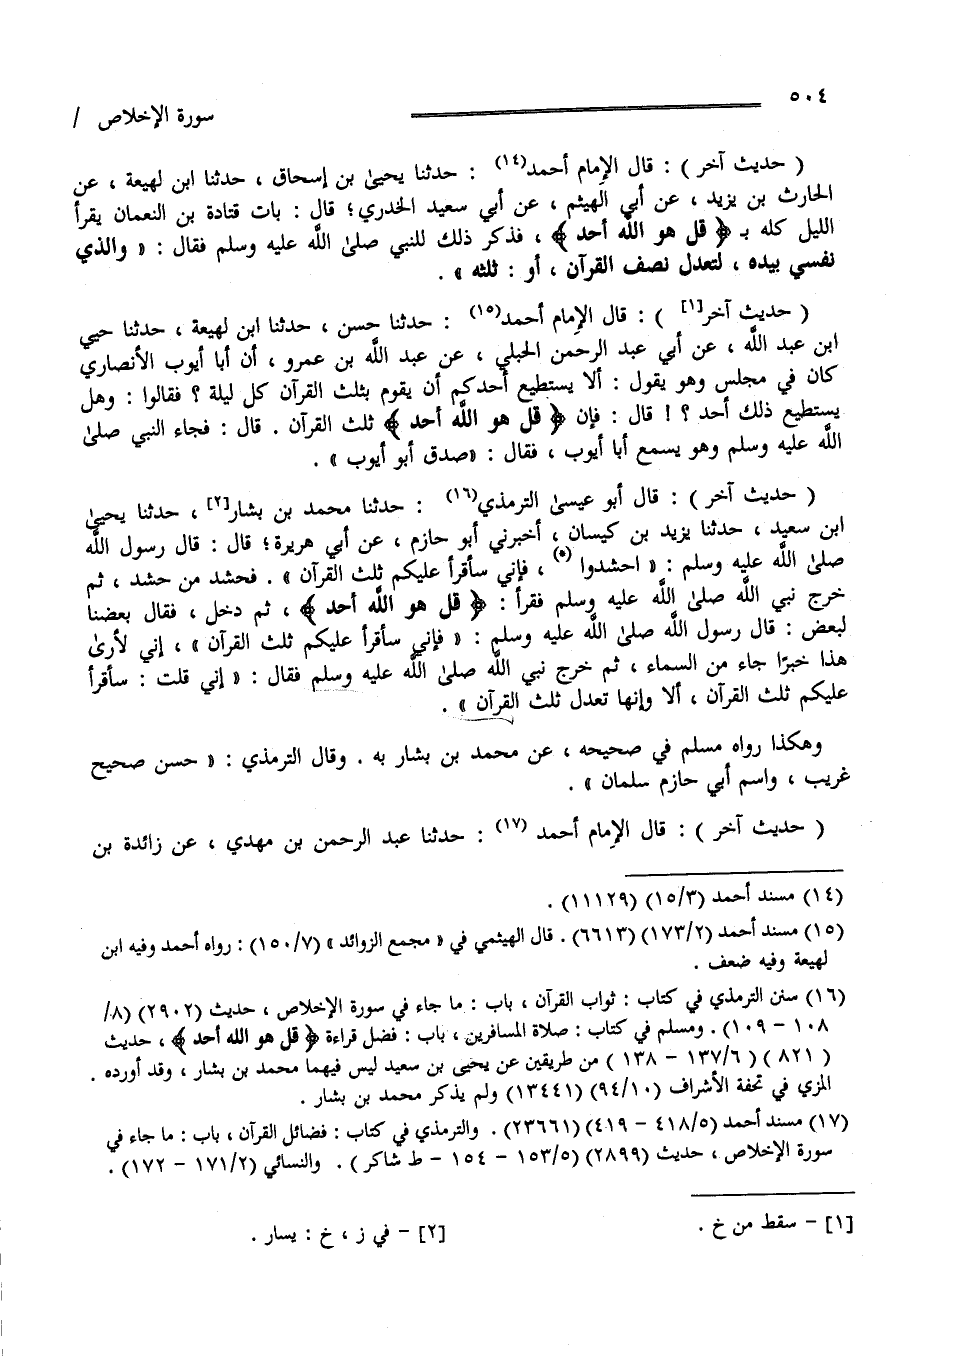 ٥٠٤
سورة الإخلاص /
( حديث آخر ) : قال الإمام أحمد(١٤) : حدثنا يحيىٰ بن إسحاق ، حدثنا ابن لهيعة ، عن
الحارث بن يزيد ، عن أبي الهيثم ، عن أبي سعيد الخدري؛ قال : بات قتادة بن النعمان يقرأ
الليل كله بـ ﴿ قل هو اللَّه أحد ﴾ ، فذكر ذلك للنبي صلىٰ اللَّه عليه وسلم فقال : « والذي
نفسي بيده ، لتعدل نصف القرآن ، أو : ثلثه » .
( حديث آخر[١] ) : قال الإمام أحمد(١٥) : حدثنا حسن ، حدثنا ابن لهيعة ، حدثنا حيي
ابن عبد اللَّه ، عن أبي عبد الرحمن الحبلي ، عن عبد اللَّه بن عمرو ، أن أبا أيوب الأنصاري
كان في مجلس وهو يقول : ألا يستطيع أحدكم أن يقوم بثلث القرآن كل ليلة ؟ فقالوا : وهل
يستطيع ذلك أحد ؟ ! قال : فإن ﴿ قل هو اللَّه أحد ﴾ ثلث القرآن . قال : فجاء النبي صلىٰ
اللَّه عليه وسلم وهو يسمع أبا أيوب ، فقال : «صدق أبو أيوب » .
( حديث آخر ) : قال أبو عيسىٰ الترمذي(١٦) : حدثنا محمد بن بشار[٢] ، حدثنا يحيىٰ
ابن سعيد ، حدثنا يزيد بن كيسان ، أخبرني أبو حازم ، عن أبي هريرة؛ قال : قال رسول اللَّه
صلىٰ اللَّه عليه وسلم : « احشدوا (*) ، فإني سأقرأ عليكم ثلث القرآن » . فحشد من حشد ، ثم
خرج نبي اللَّه صلىٰ اللَّه عليه وسلم فقرأ : ﴿ قل هو اللَّه أحد ﴾ ، ثم دخل ، فقال بعضنا
لبعض : قال رسول اللَّه صلىٰ اللَّه عليه وسلم : « فإني سأقرأ عليكم ثلث القرآن » ، إني لأرىٰ
هذا خبرًا جاء من السماء ، ثم خرج نبي اللَّه صلىٰ اللَّه عليه وسلم فقال : « إني قلت : سأقرأ
عليكم ثلث القرآن ، ألا وإنها تعدل ثلث القرآن » .
وهكذا رواه مسلم في صحيحه ، عن محمد بن بشار به . وقال الترمذي : « حسن صحيح
غريب ، واسم أبي حازم سلمان » .
( حديث آخر ) : قال الإمام أحمد (١٧) : حدثنا عبد الرحمن بن مهدي ، عن زائدة بن
(١٤) مسند أحمد (١٥/٣) (١١١٢٩) .
(١٥) مسند أحمد (١٧٣/٢) (٦٦١٣) . قال الهيثمي في « مجمع الزوائد » (١٥٠/٧) : رواه أحمد وفيه ابن
لهيعة وفيه ضعف .
(١٦) سنن الترمذي في كتاب : ثواب القرآن ، باب : ما جاء في سورة الإخلاص ، حديث (٢٩٠٢) (٨/
١٠٨ - ١٠٩) . ومسلم في كتاب : صلاة المسافرين ، باب : فضل قراءة ﴿ قل هو الله أحد ﴾ ، حديث
( ٨٢١ ) ( ١٣٧/٦ - ١٣٨ ) من طريقين عن يحيى بن سعيد ليس فيهما محمد بن بشار ، وقد أورده .
المزي في تحفة الأشراف (٩٤/١٠) (١٣٤٤١) ولم يذكر محمد بن بشار .
(١٧) مسند أحمد (٤١٨/٥ - ٤١٩) (٢٣٦٦١) . والترمذي في كتاب : فضائل القرآن ، باب : ما جاء في
سورة الإخلاص ، حديث (٢٨٩٩) (١٥٣/٥ - ١٥٤ - ط شاكر ) . والنسائي (١٧١/٢ - ١٧٢) .
[١] - سقط من خ .
[٢] - في ز ، خ : يسار .